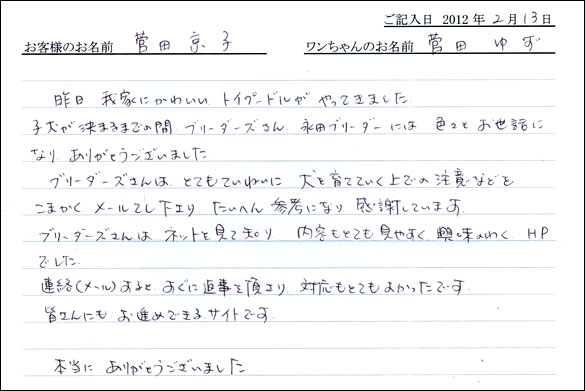 ご記入日 2012年2月13日
お客様のお名前 菅田京子 ワンちゃんのお名前 菅田ゆず
昨日 我家にかわいい トイプードルが やってきました
子犬が決まるまでの間 ブリーダーズさん、永田ブリーダーには 色々とお世話に
なり ありがとうございました
ブリーダーズさんは とてもていねいに 犬を育てていく上での注意などを
こまかく メールでして下さり たいへん参考になり 感謝しています。
ブリーダーズさんは ネットを見て知り 内容もとても見やすく 興味のわく HP
でした。
連絡(メール)すると すぐに返事を頂き 対応もとてもよかったです
皆さんにも お進めできるサイトです。
本当に ありがとうございました